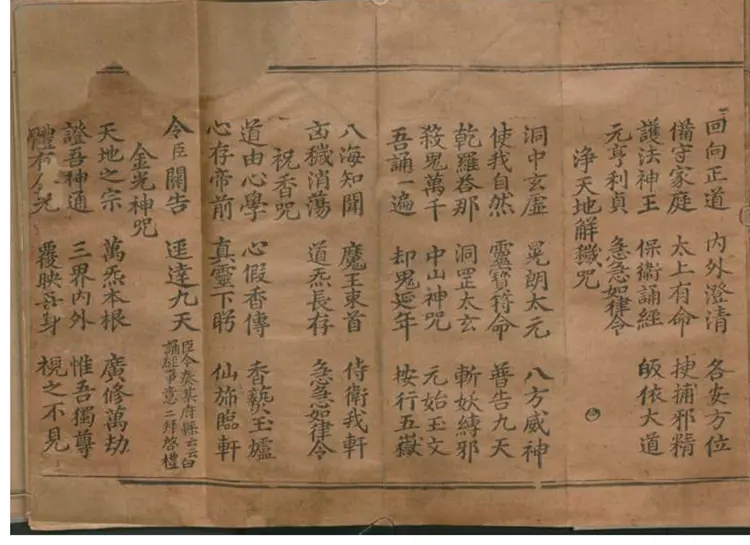 回向正道 內外澄清 各安方位
備守家庭 太上有命 捕邪精
護法神王 保衛誦經 皈依大道
元亨利貞 急急如律令
浄天地解穢咒
洞中玄虛 晃朗太元 八方威神
使我自然 靈寶符命 普告九天
乾羅荅那 洞罡太玄 斬妖縛邪
殺鬼萬千 中山神咒 元始玉文
吾誦一遍 却鬼延年 按行五嶽
八海知聞 魔王束首 侍衛我軒
凶穢消蕩 道炁長存 急急如律令
祝香咒
道由心學 心假香傳 香爇玉爐
心存帝前 真靈下盻 仙旆臨軒
令臣關告 逕達九天 臣今奏某府縣云云白
誦經事意二拜啓禮
金光神咒
天地之宗 萬炁本根 廣修萬劫
證吾神通 三界內外 惟吾獨尊
體有金光 覆映吾身 視之不見